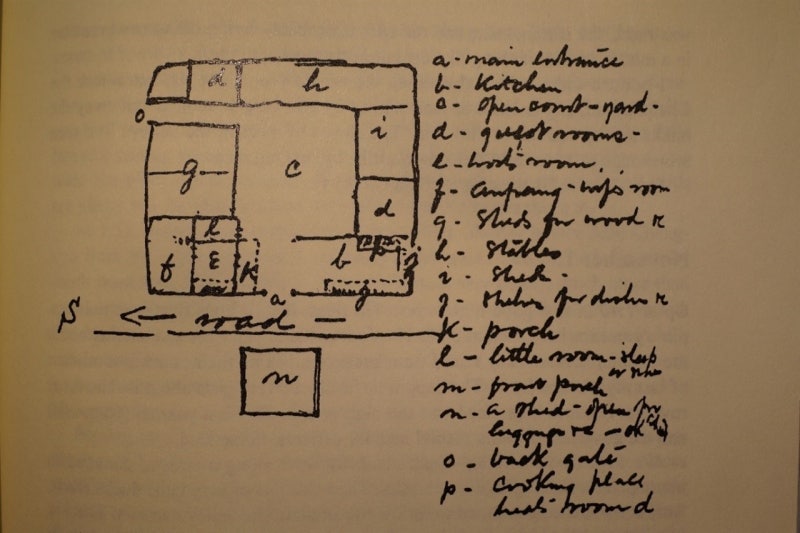 a - main entrance
b - Kitchen
c - open court-yard -
d - guest rooms -
e - host's room,
f - wife's room
g - Sheds for wood &
h - Stables
i - Shed -
j - shelves for dishes &
k - porch
l - little room - sleep
m - front porch
n - a shed - open for
luggage &c -
o - back gate
p - cooking place
heats room d
d
h
o
i
g
c
d
l
b
p
f
E
k
m
a
j
S
road
n